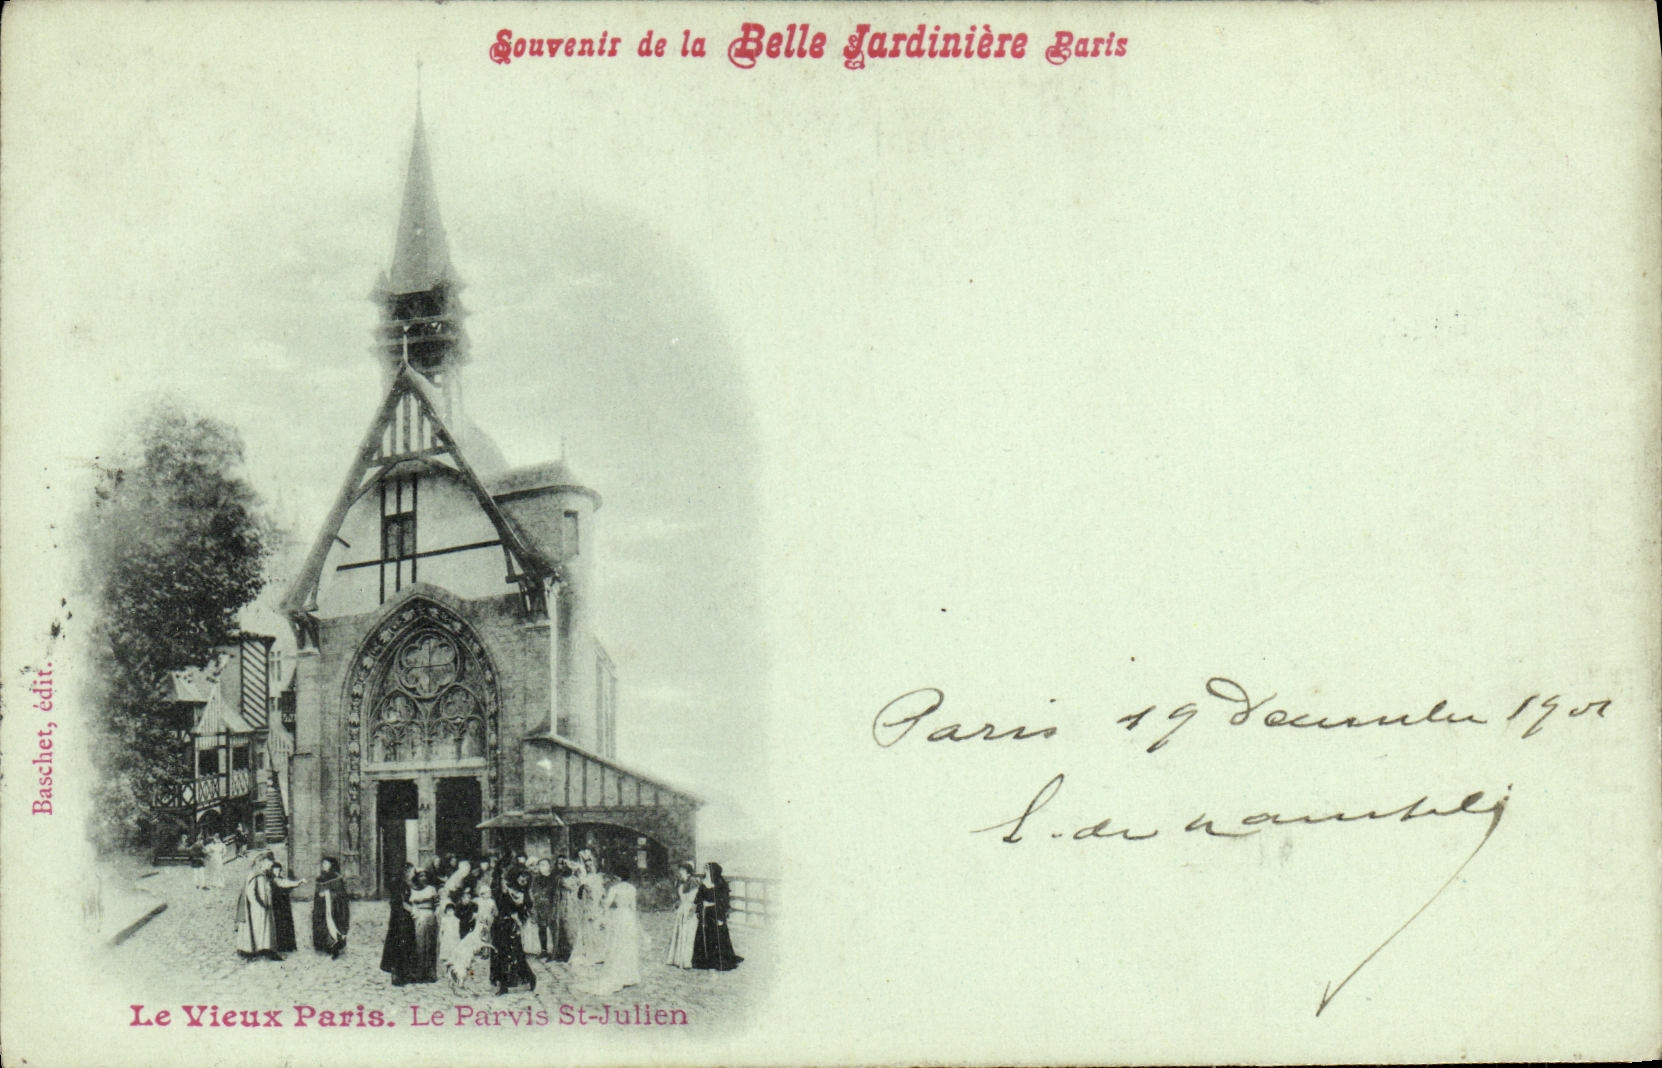 Souvenir de la Belle Jardinière Paris
Baschet, édit.
Paris 19 Decembre 1901
Le Vieux Paris. Le Parvis St-Julien